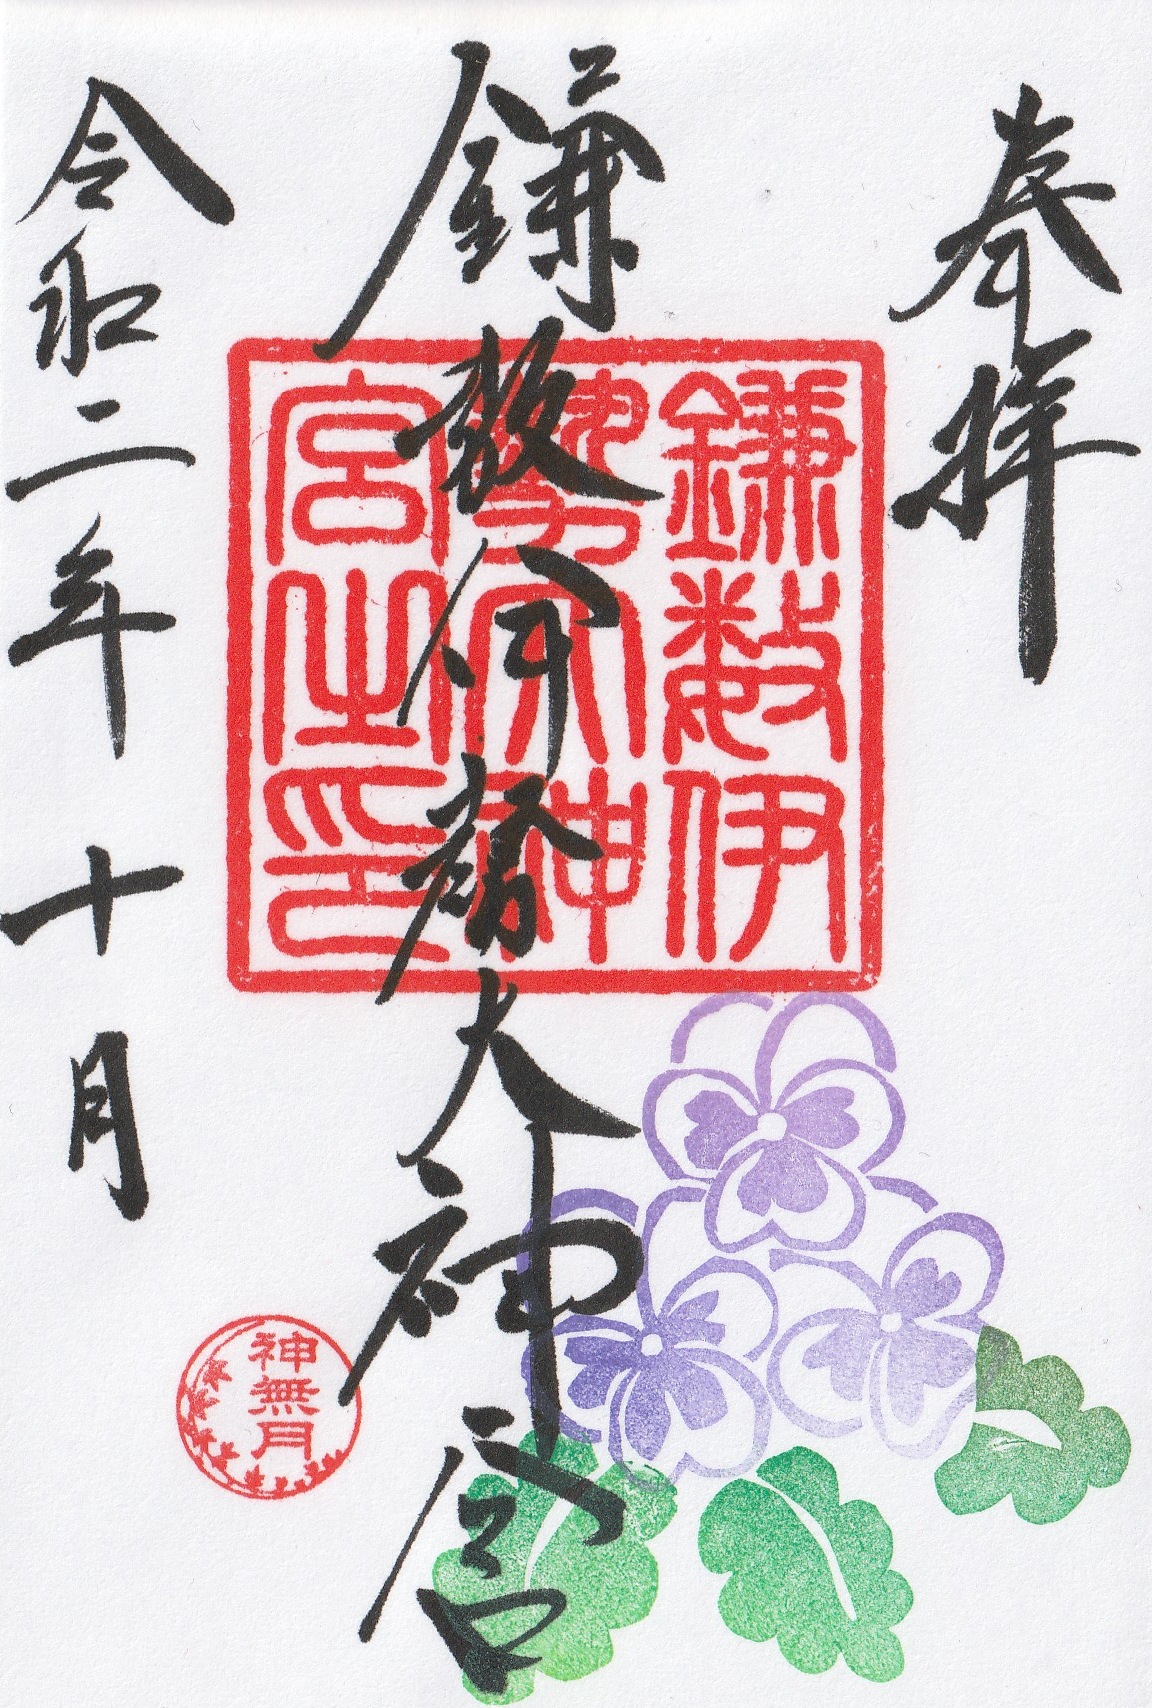 奉拝
鎌数伊勢大神宮
鎌数伊
勢大神
宮之印
令和二年十月
神無月